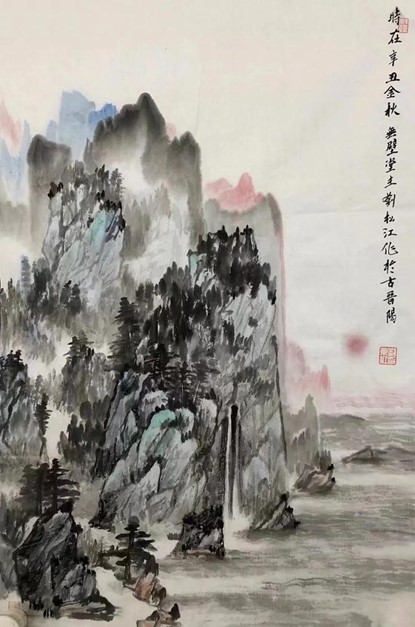 時在辛丑金秋無壁堂主劉松江作於古晉陽